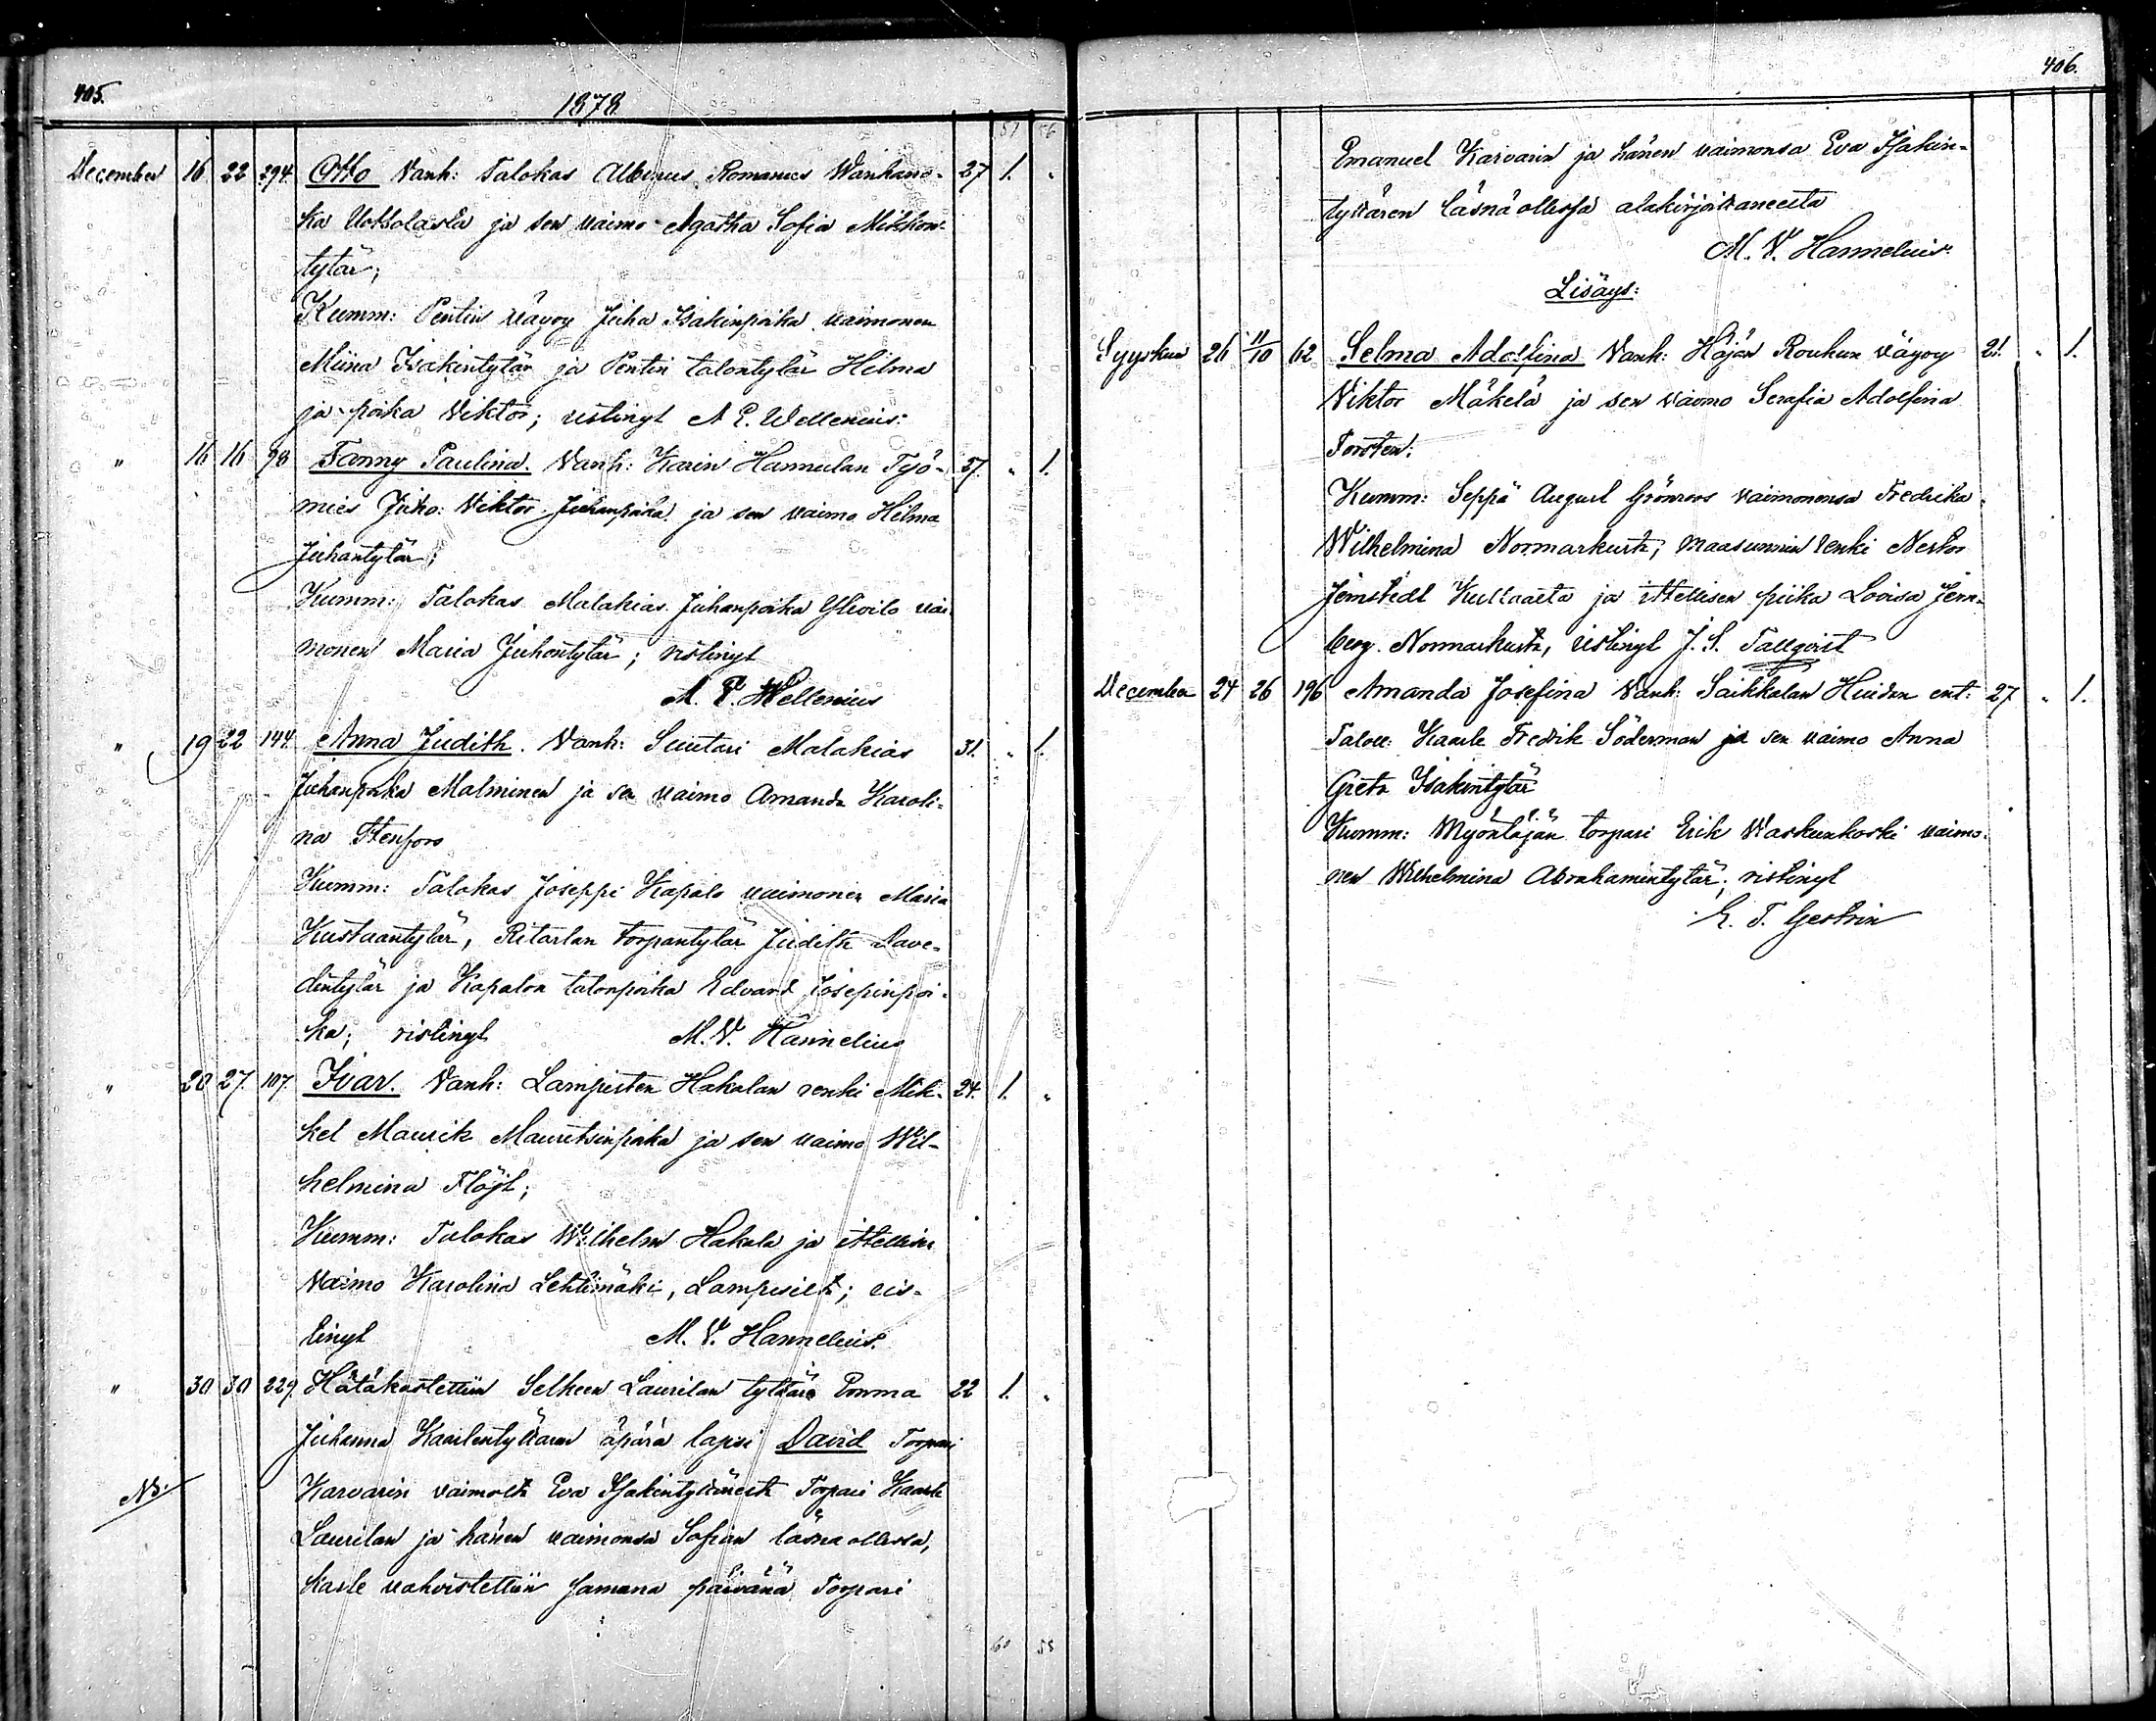 405.
1878
57 56
December 16 22 294. Otto Vanh: Talokas Albinus Romanus Wanhano- 27 1. "
ka Uotsolasta ja sen vaimo Agatha Sofia Mikkon-
tytär;
Kumm: Pentin vävyy Juha Isakinpoika vaimonen
Miina Isakintytär ja Pentin talontytär Hilma
ja poika Viktor; ristinyt A. P. Wellenius.
" 16 16 98 Fanny Paulina. Vanh: Karin Hannulan Työ- 37. " 1.
mies Juho Viktor Juhanpoika ja sen vaimo Hilma
Juhantytär;
Kumm: Talokas Malakias Juhanpoika Ylivilo vai-
monen Maria Juhontytär; ristinyt
A. P. Wellenius
" 19 22 144. Anna Judith. Vanh: Suutari Malakias 31. " 1.
Juhanpoika Malminen ja sen vaimo Amanda Karoli-
na Stenfors
Kumm: Talokas Joseppi Kapalo vaimonen Maria
Kustaantytär, Ritarlan torpantytär Judith Dave-
dintytär ja Kapalon talonpoika Edvard Josepinpoi-
ka; ristinyt M. V. Hannelius
" 20 27. 107. Ivar. Vanh: Lampisten Hakalan renki Mik- 24. 1. "
kel Maurik Mauritsinpoika ja sen vaimo Wil-
helmina Flöjt;
Kumm: Talokas Wilhelm Hakala ja ittellisen
vaimo Karolina Lehtimäki, Lampisilt; ris-
tinyt M. V. Hannelius.
" 30 30 229. Hätäkastettiin Selkeen Laurilan tyttären Emma 22 1. "
Juhanna Kaarlentyttären äpärä lapsi David Torpari
NB. Karvarin vaimolta Eva Isakintyttäreltä Torpari Kaarle
Laurilan ja hänen vaimonsa Sofian läsnäollessa,
kaste vahvistettiin samana päivänä Torpari
60 58
406.
Emanuel Karvarin ja hänen vaimonsa Eva Isakin-
tyttären läsnäollessa alakirjoittaneelta
M. V. Hannelius.
Lisäys:
Syyskuu 26 11/10 62 Selma Adolfina Vanh: Häjän Rouhun vävyy 21. " 1.
Viktor Mäkelä ja sen vaimo Serafia Adolfina
Forsten.
Kumm: Seppä August Grönroos vaimonensa Fredrika
Wilhelmina Normarkusta; maasunnin renki Nestor
Jernstedt Kullaalta ja ittellisen piika Lovisa Jern-
berg. Normarkusta, ristinyt J. S. Tallqvist
December 24 26 196 Amanda Josefina Vanh: Saikkalan Huidan ent: 27 " 1.
Taloll: Kaarle Fredrik Söderman ja sen vaimo Anna
Greta Isakintytär
Kumm: Myöntäjän torpari Erik Waskunkoski vaimo-
nen Wilhelmina Abrahamintytär; ristinyt
E. F. Gestrin